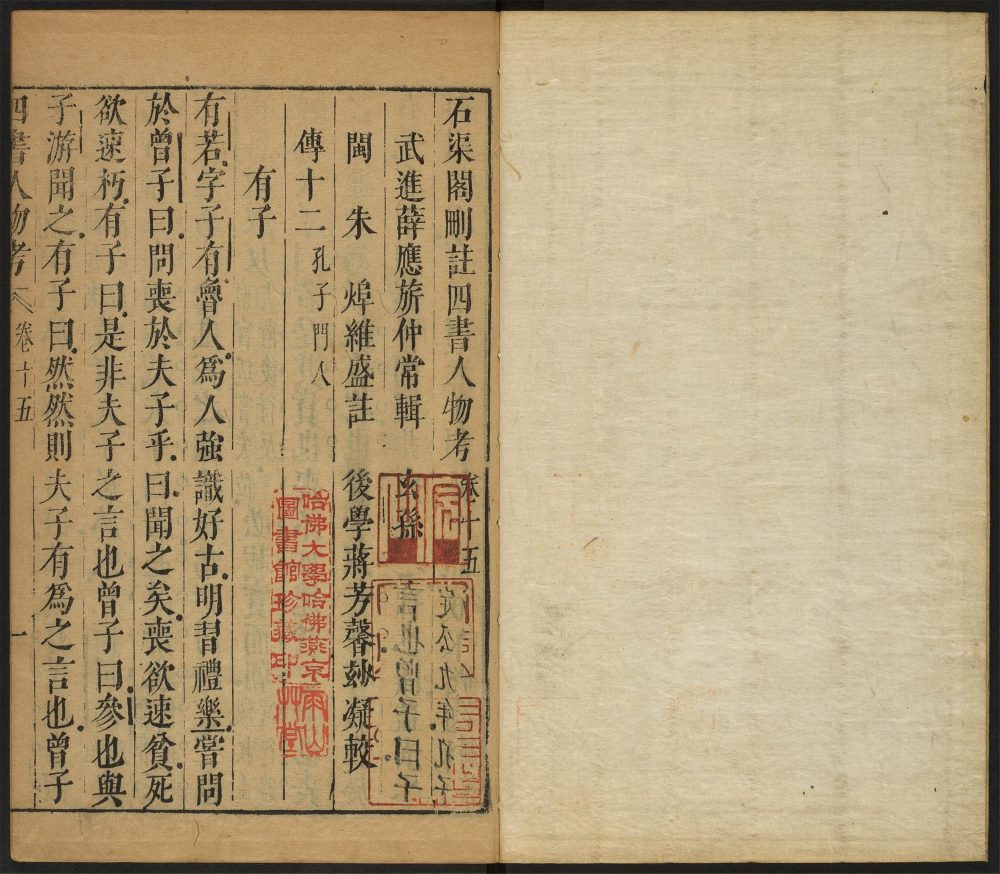 石渠閣刪註四書人物考卷十五
武進薛應旂仲常輯 玄孫
閩 朱 焞維盛註 後學蔣芳馨玅凝較
傳十二 孔子門人
有子
有若字子有魯人爲人強識好古明習禮樂嘗問
於曾子曰問喪於夫子乎曰聞之矣喪欲速貧死
欲速朽有子曰是非夫子之言也曾子曰參也與
子游聞之有子曰然然則夫子有爲之言也曾子
四書人物考 卷十五 一
哈佛大學哈佛燕京
圖書館珍藏印